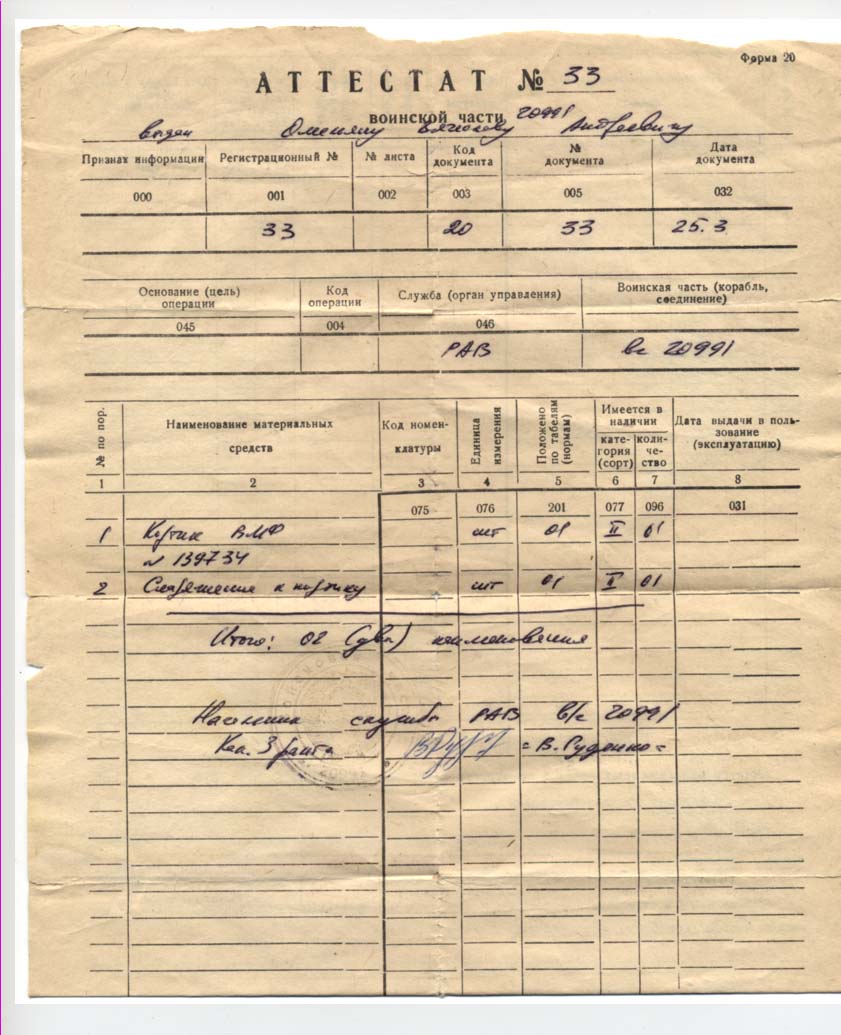 Форма 20
АТТЕСТАТ № 33
воинской части 20991
выдан Андреевичу
Признак информации Регистрационный № № листа Код документа № документа Дата документа
000 001 002 003 005 032
33 20 33 25.3
Основание (цель) операции Код операции Служба (орган управления) Воинская часть (корабль, соединение)
045 004 046
РАВ вс 20991
№ по пор. Наименование материальных средств Код номен- клатуры Единица измерения Положено по табелям (нормам) Имеется в наличии кате- гория (сорт) коли- че- ство Дата выдачи в поль- зование (эксплуатацию)
1 2 3 4 5 6 7 8
075 076 201 077 096 031
1 Кортик ВМФ шт 01 II 01
№ 139734
2 Снаряжение к кортику шт 01 II 01
Итого: 02 (два) наименования
Начальник службы РАВ в/с 20991
Кап. 3 ранга =В. Руденко=